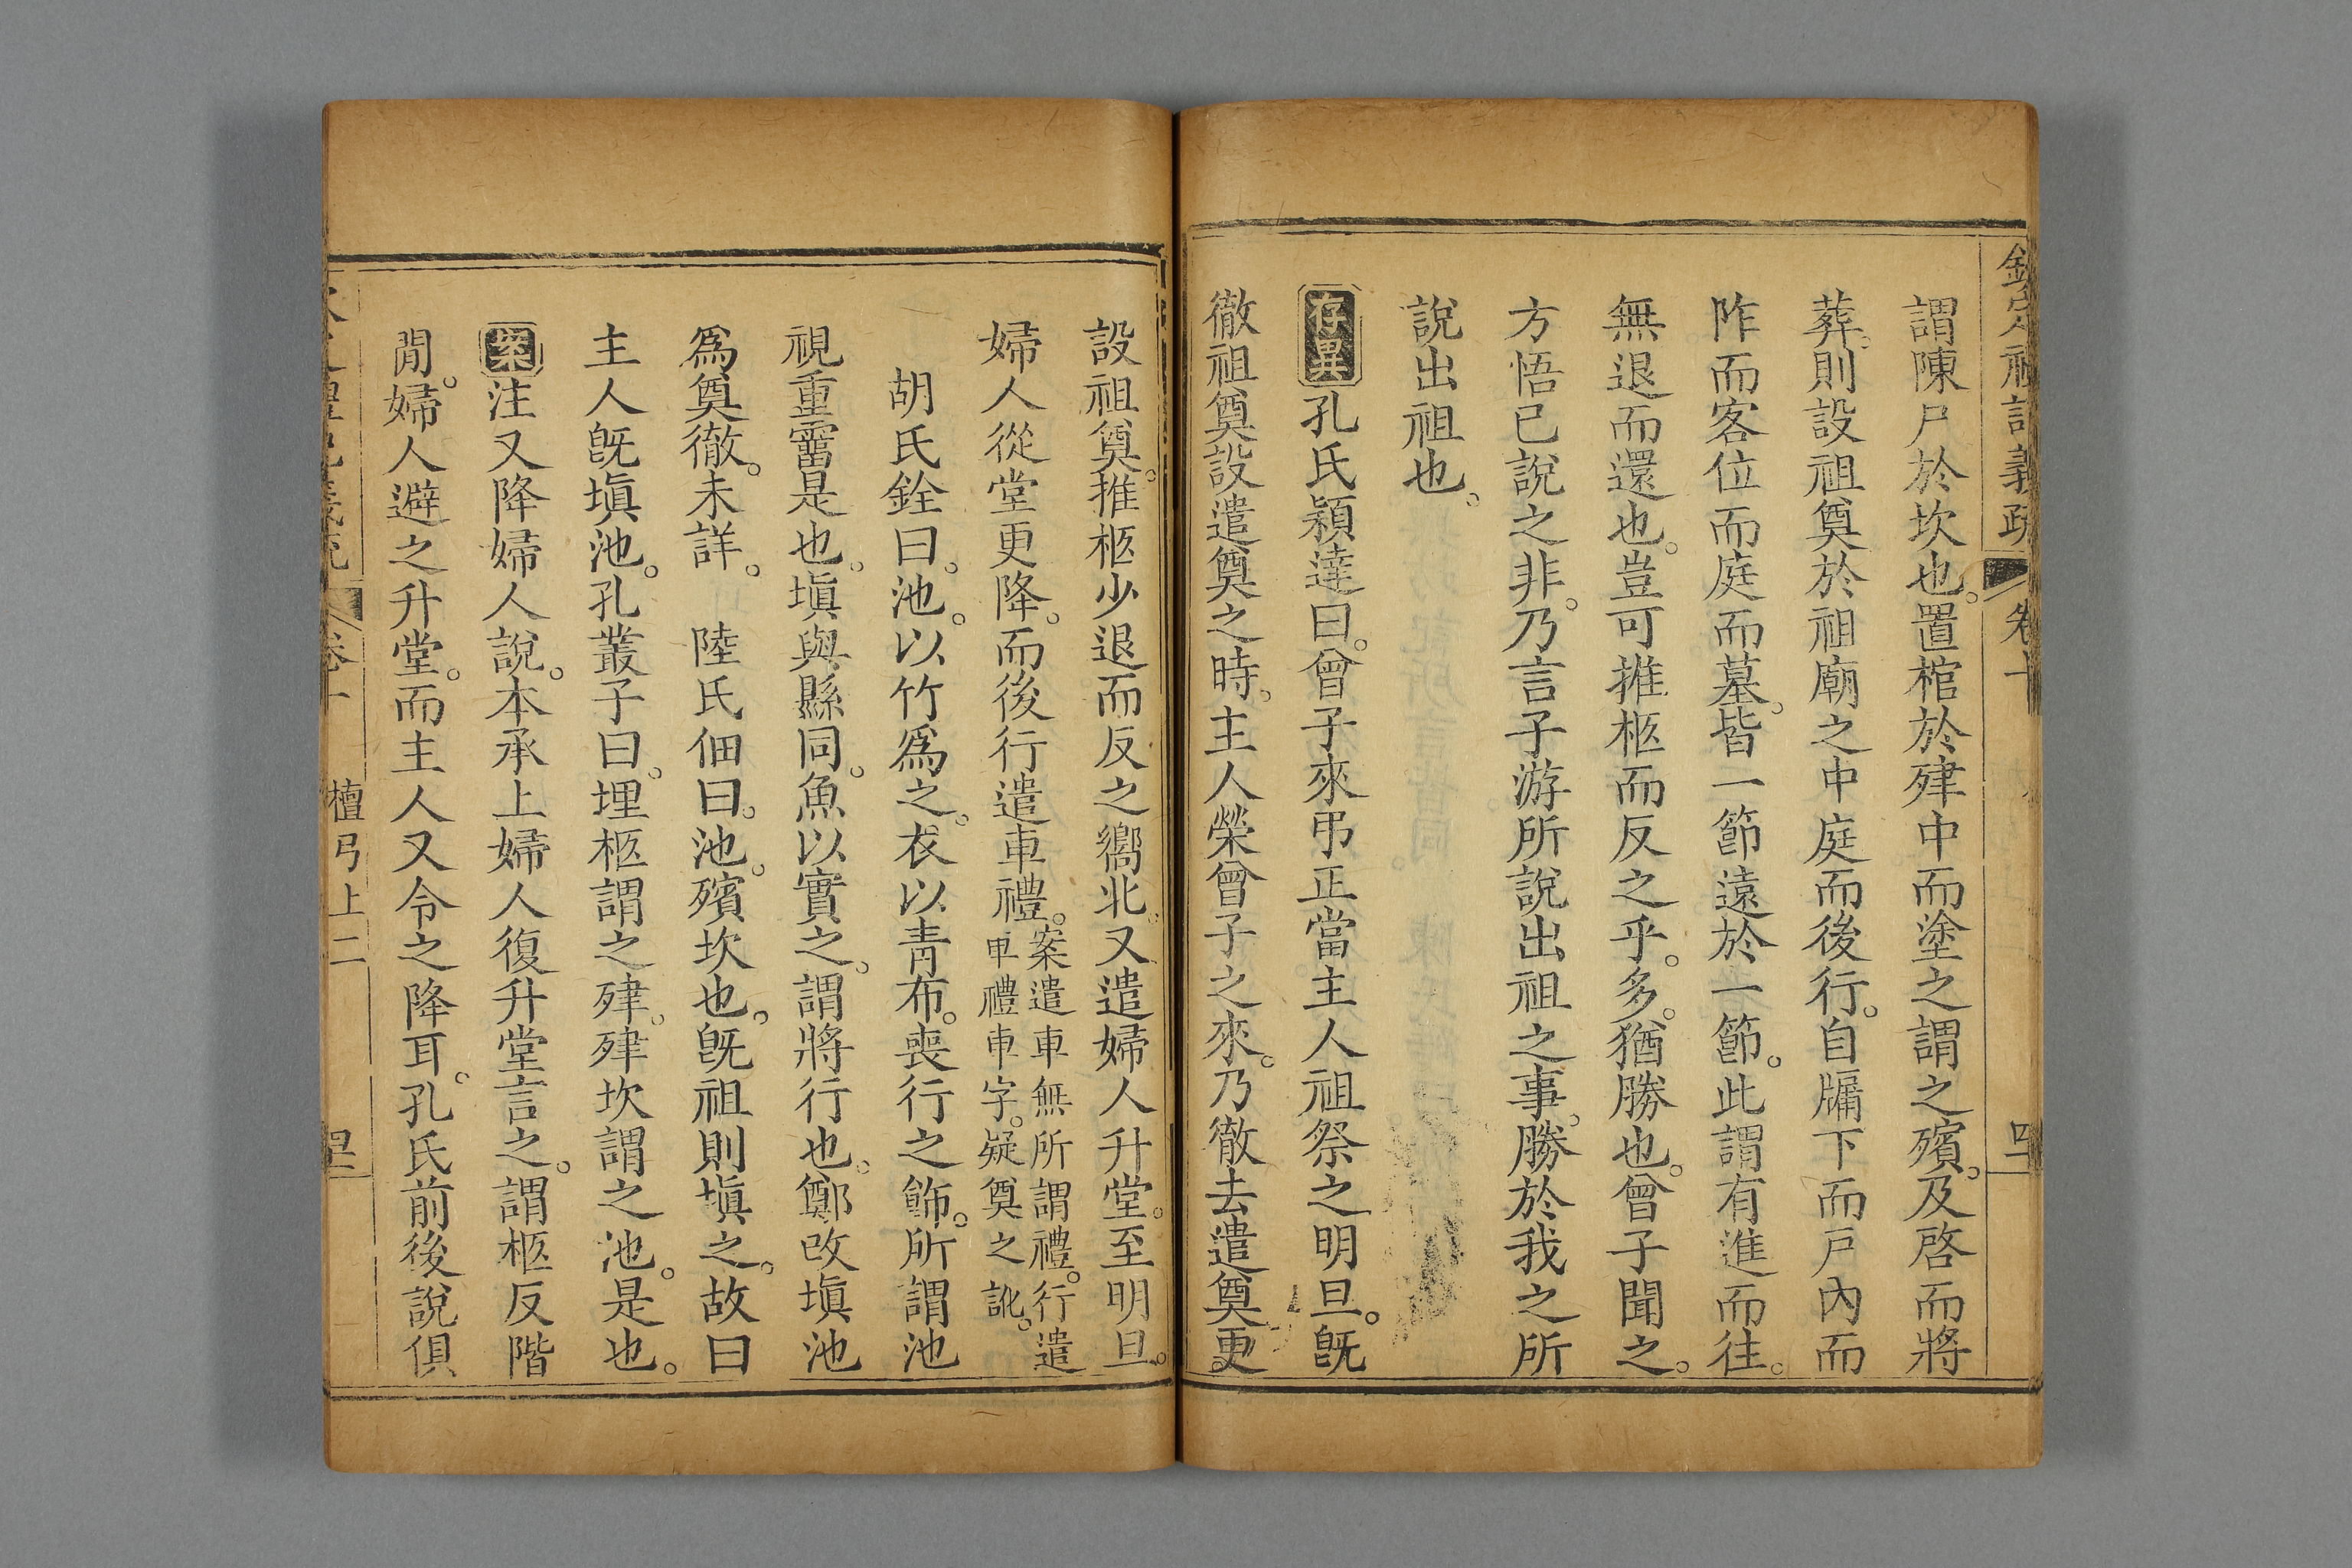 欽定禮記義疏 卷十
謂陳尸於坎也。置棺於肂中而塗之謂之殯。及啓而將
葬。則設祖奠於祖廟之中庭而後行。自牖下而戶內而
阼而客位而庭而墓。皆一節遠於一節。此謂有進而往。
無退而還也。豈可推柩而反之乎。多。猶勝也。曾子聞之。
方悟已說之非。乃言子游所說出祖之事。勝於我之所
說出祖也。
存異孔氏穎達曰。曾子來弔正當主人祖祭之明旦。旣
徹祖奠設遣奠之時。主人榮曾子之來。乃徹去遣奠。更
設祖奠。推柩少退而反之嚮北。又遣婦人升堂。至明旦。
婦人從堂更降。而後行遣車禮。案遣車無所謂禮。行遣
車禮車字。疑奠之訛。
胡氏銓曰。池。以竹爲之。衣以青布。喪行之飾。所謂池
視重霤是也。塡與縣同。魚以實之。謂將行也。鄭改塡池
爲奠徹。未詳。 陸氏佃曰。池。殯坎也。旣祖則塡之。故曰
主人旣塡池。孔叢子曰。埋柩謂之肂。肂坎謂之池。是也。
案注又降婦人說。本承上婦人復升堂言之。謂柩反階
閒。婦人避之升堂。而主人又令之降耳。孔氏前後說俱
卷十 檀弓上二